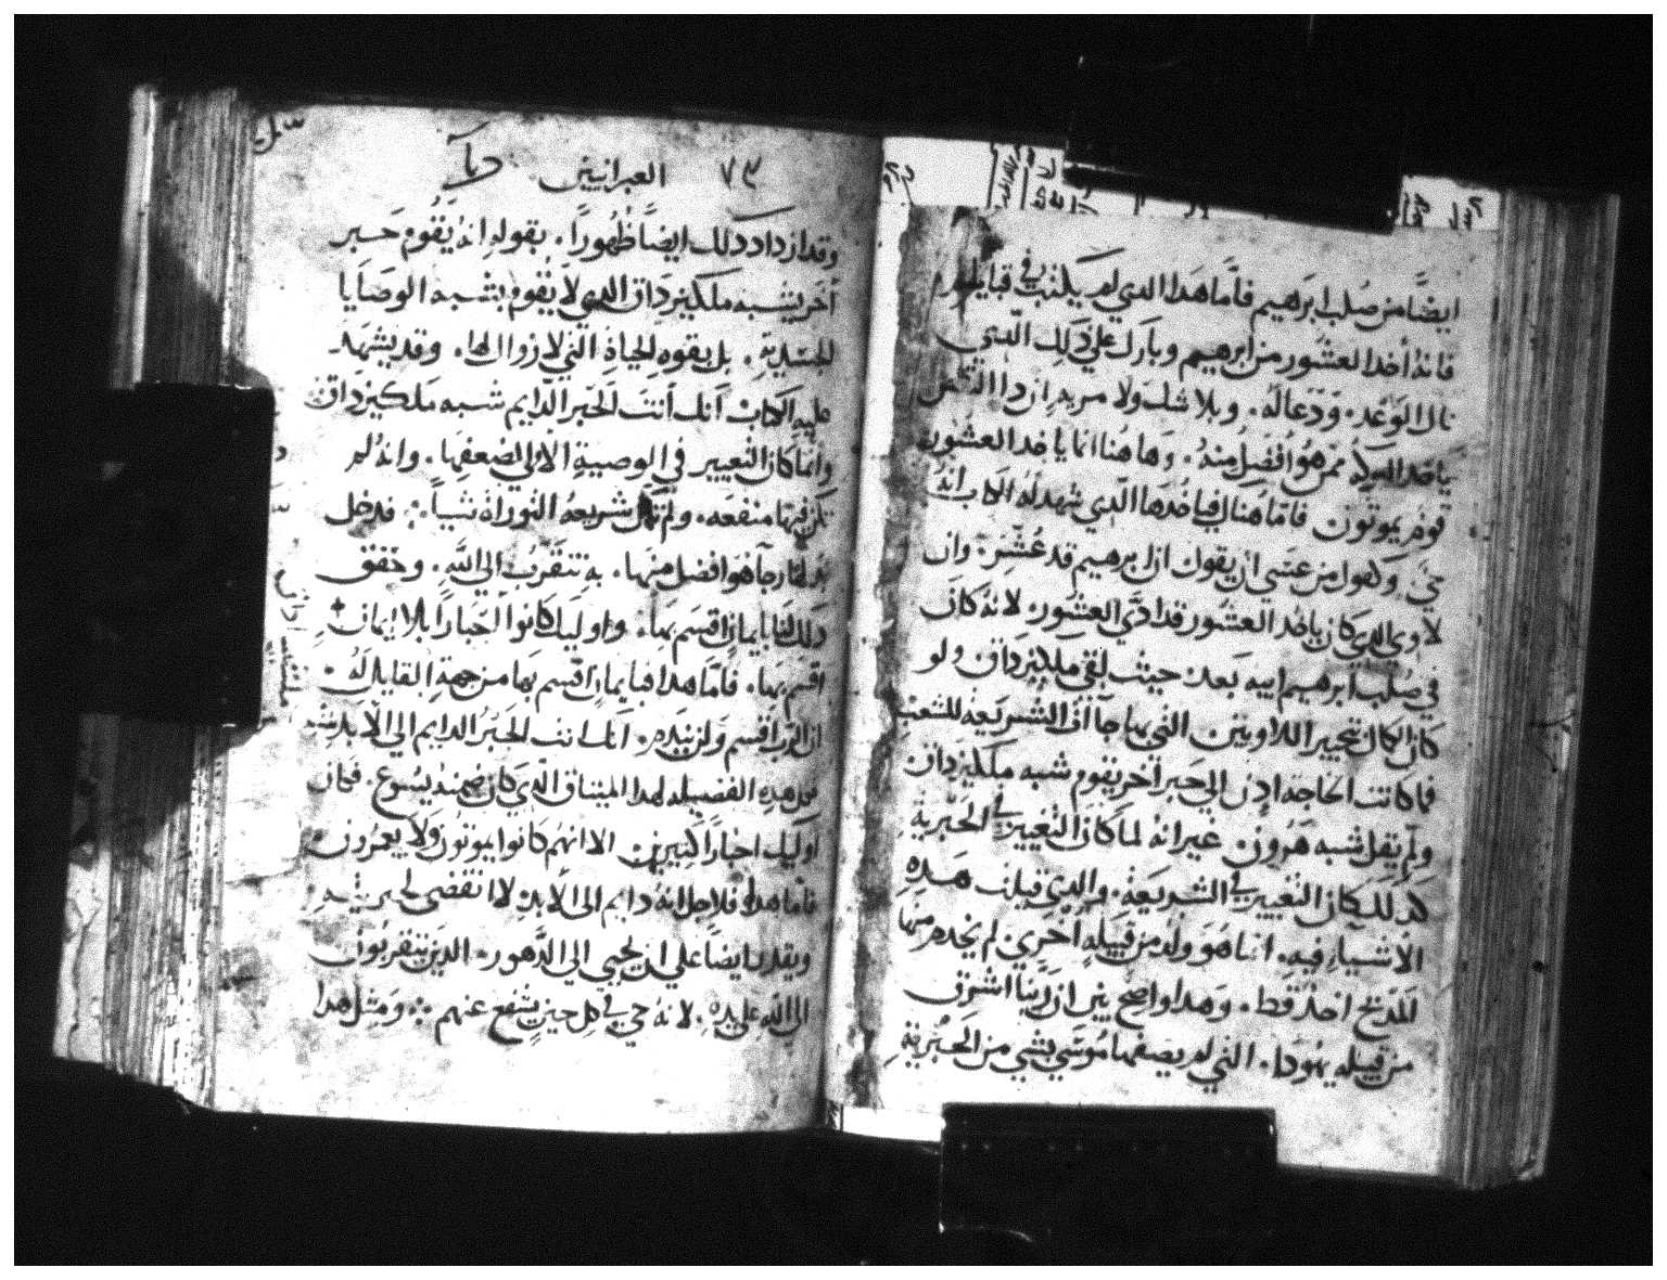 ايضًا من صُلب ابرهيم فامّا هذا الدي لم يكتب في قبايلهم
فانه أخد العشور من ابرهيم وبارك علي دلك الّدي
نال الوَعْد. وَدَعَا لَه. وبلا شك ولا مريه ان
ياخد البركة ممن هُوَ أفضل منهُ. وَهَاهُنا انما ياخد العشور
قوم يموتون فامّا هناك فياخدها الّدي شهد له الكتاب انهُ
حيّ. وكقول من عسَي أن يقول ان ابرهيم قد عُشّر. وان
لاوي الدي كان ياخد العشور قد ادّي العشور. لانه كان
في صُلب ابرهيم ابيه بَعد حيث لقي ملكيزداق ولو
كان الكمال بتحبير اللاويين التي بها جآت الشريعة للشعب
فما كانت الحاجه إدن الي حبر أخر يقوم شبه ملكيزداق
ولم يقل شبه هرون. غير انه لما كان التغيير في الحَبرية
كدلك كان التغيير في الشريعَة. والدي قيلت هَده
الاشيآء فيه. انما هوَ وُلد من قبيلهٍ أخري لم يخدم منها
المَدبح احدٌ قط. وهدا واضح بيّن ان ربّنا اشرق
من قبيله يهُودا. التي لم يصفها مُوسَي بشي من الحَبْرية
٧٣ العبرانيين
وقد ازداد دلك ايضًا ظُهورًا. بقوله انه يَقُوم حَبر
أخر يشبه ملكيزدَاق الدي لا يقوم بشبه الوصَايا
الجسَديّةِ. بل بقوه الحياة التي لا زوال لها. وقد يشهد
عليه الكتاب أنك أنت الحَبر الدّايم شبه مَلكيزداق
وانما كان التغيير في الوصية الأولي لضعفها. وانه لم
تكن فيها منفعَه. ولم تكمل شريعة التوراة شيًا. فدخل
رجآ هوَ افضل منها. به نتقرّب الي اللّهِ. وحَقق
دلك لنا بايمانٍ اقسَم بها. واوليك كانوا أحبارًا بلا ايمان
اقسم بها. فامّا هدا فبايمان اقسم بها من جهة القايل له
ان الرب اقسم وَلن يندم. أنك انت الحَبرُ الدايم الي الأبد
هده الفضيله لهدا الميثاق الّدي كان ضمنه يسُوع. فكان
اوليك احبارًا كثيرين. الا انهم كانوا يموتون وَلا يعمرون
فامّا هدا فلاجل انه دايم الي الأبد لا انقضي لحبريته
ويقدر ايضًا علي ان يحيي الي الدَّهور. الدين يتقربون
الي اللّه علي يده. لانه حي في كل حين يشفع عنهم. وَمثل هدا